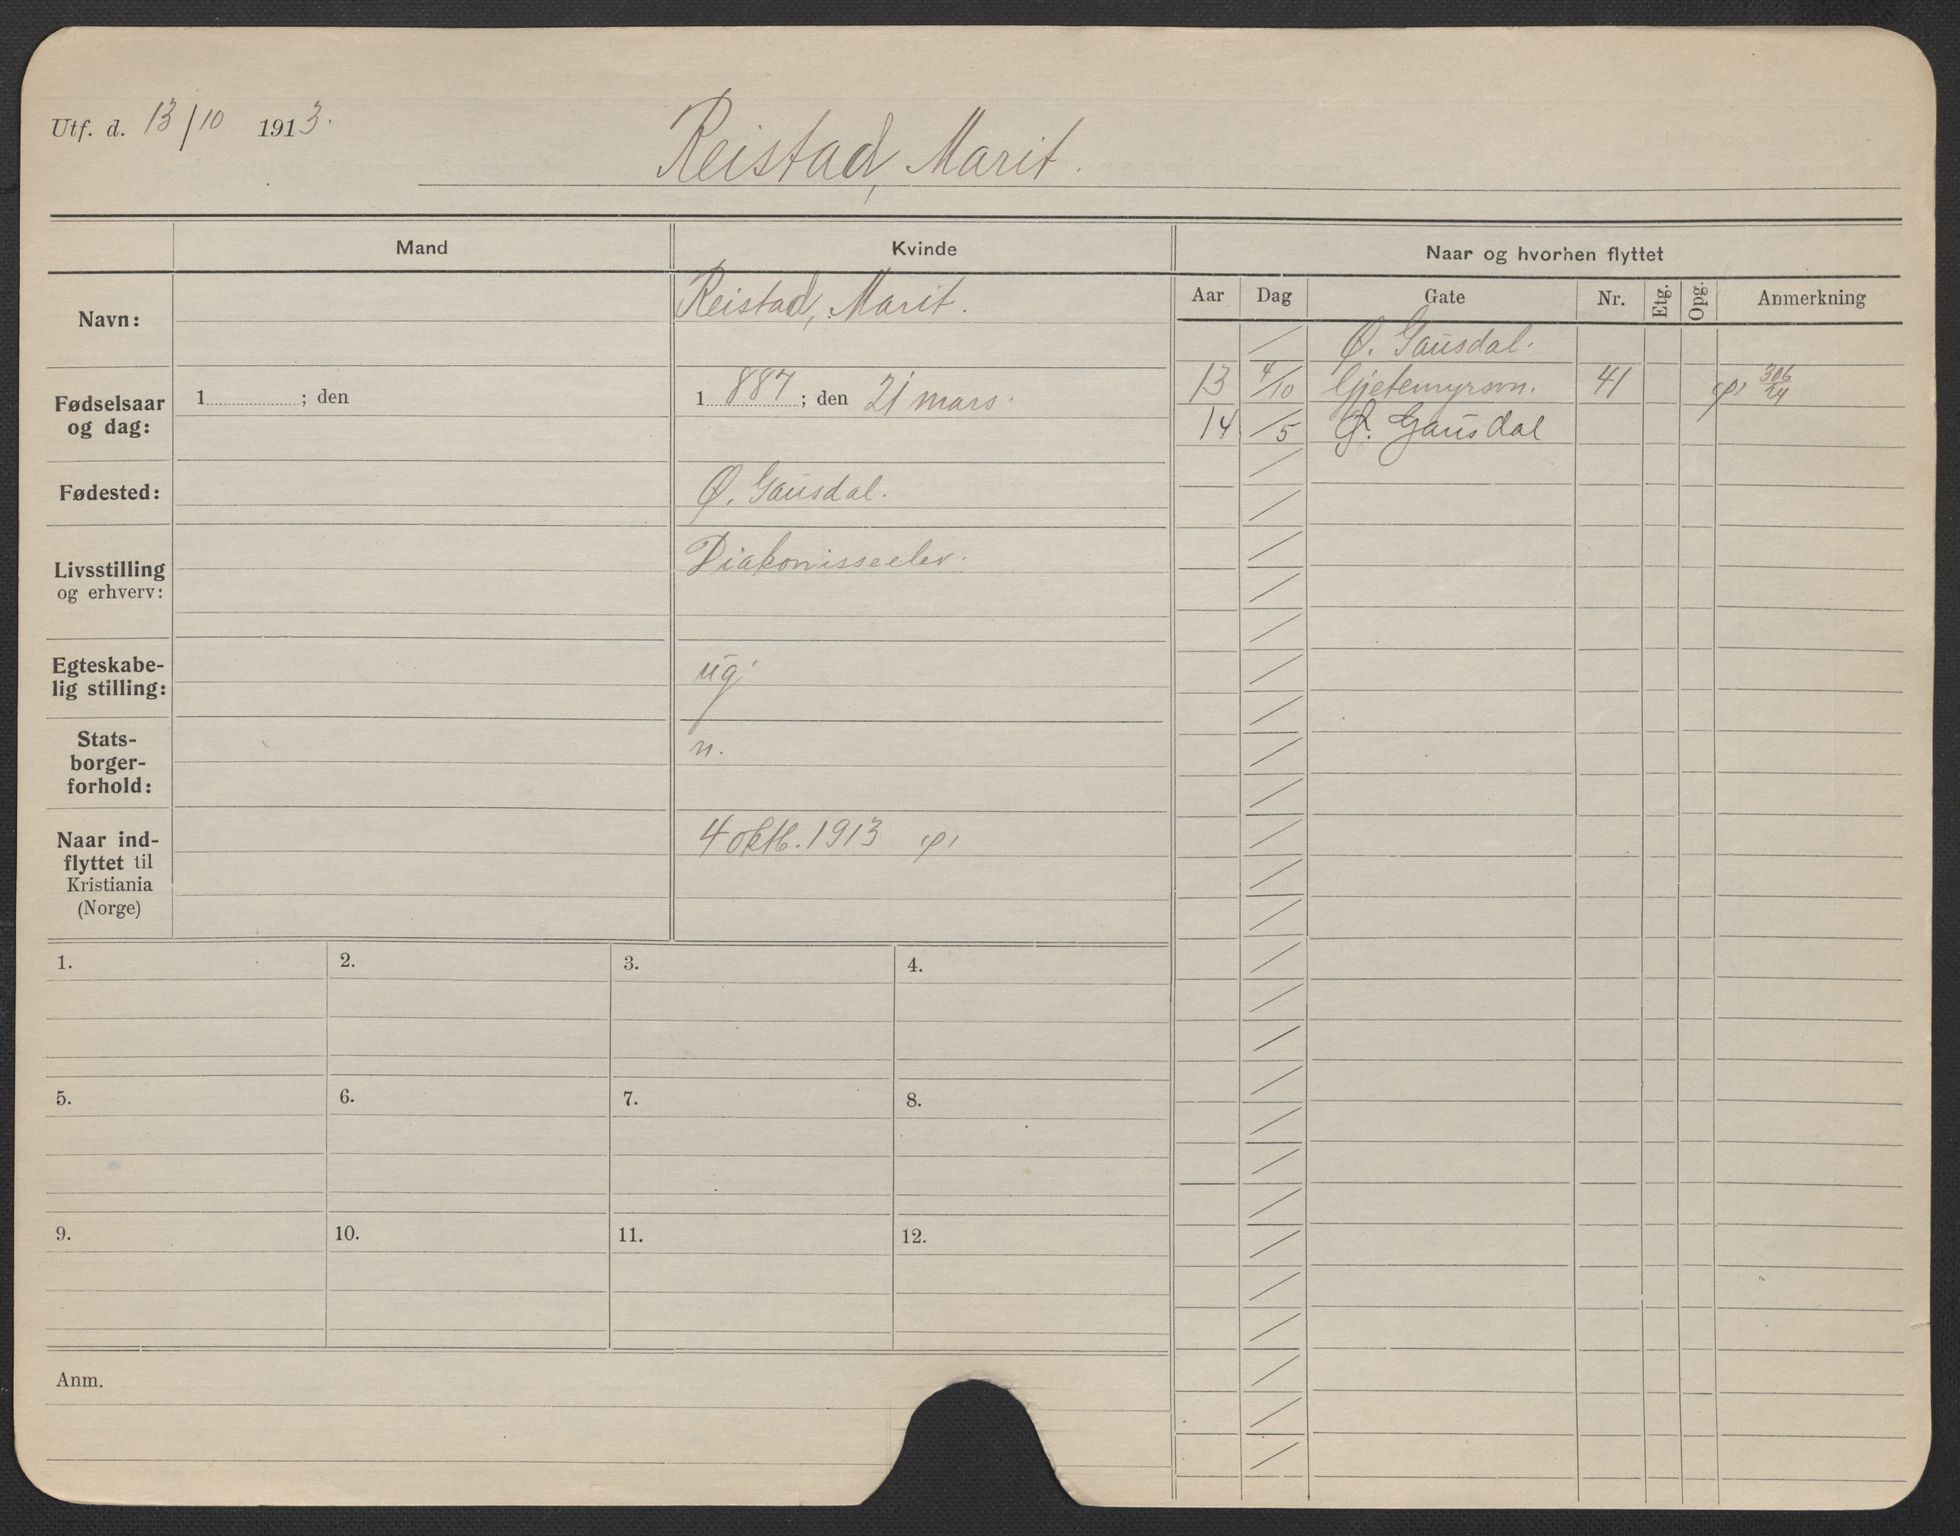 Utf. d. 13/10 1913.
Reistad, Marit.
Mand
Kvinde
Naar og hvorhen flyttet
Aar Dag Gate Nr. Etg. Opg. Anmerkning
Navn:
Reistad, Marit.
Fødselsaar
og dag:
1 ; den
1 887 ; den 21 mars.
Fødested:
Ø. Gausdal.
Livsstilling
og erhverv:
Diakonisseelev.
Egteskabe-
lig stilling:
ug.
Stats-
borger-
forhold:
n.
Naar ind-
flyttet til
Kristiania
(Norge)
4 oktb. 1913
/ Ø. Gausdal.
13 4/10 Gjetemyrsvn. 41 306/24
14 /5 Ø. Gausdal
1. 2. 3. 4.
5. 6. 7. 8.
9. 10. 11. 12.
Anm.